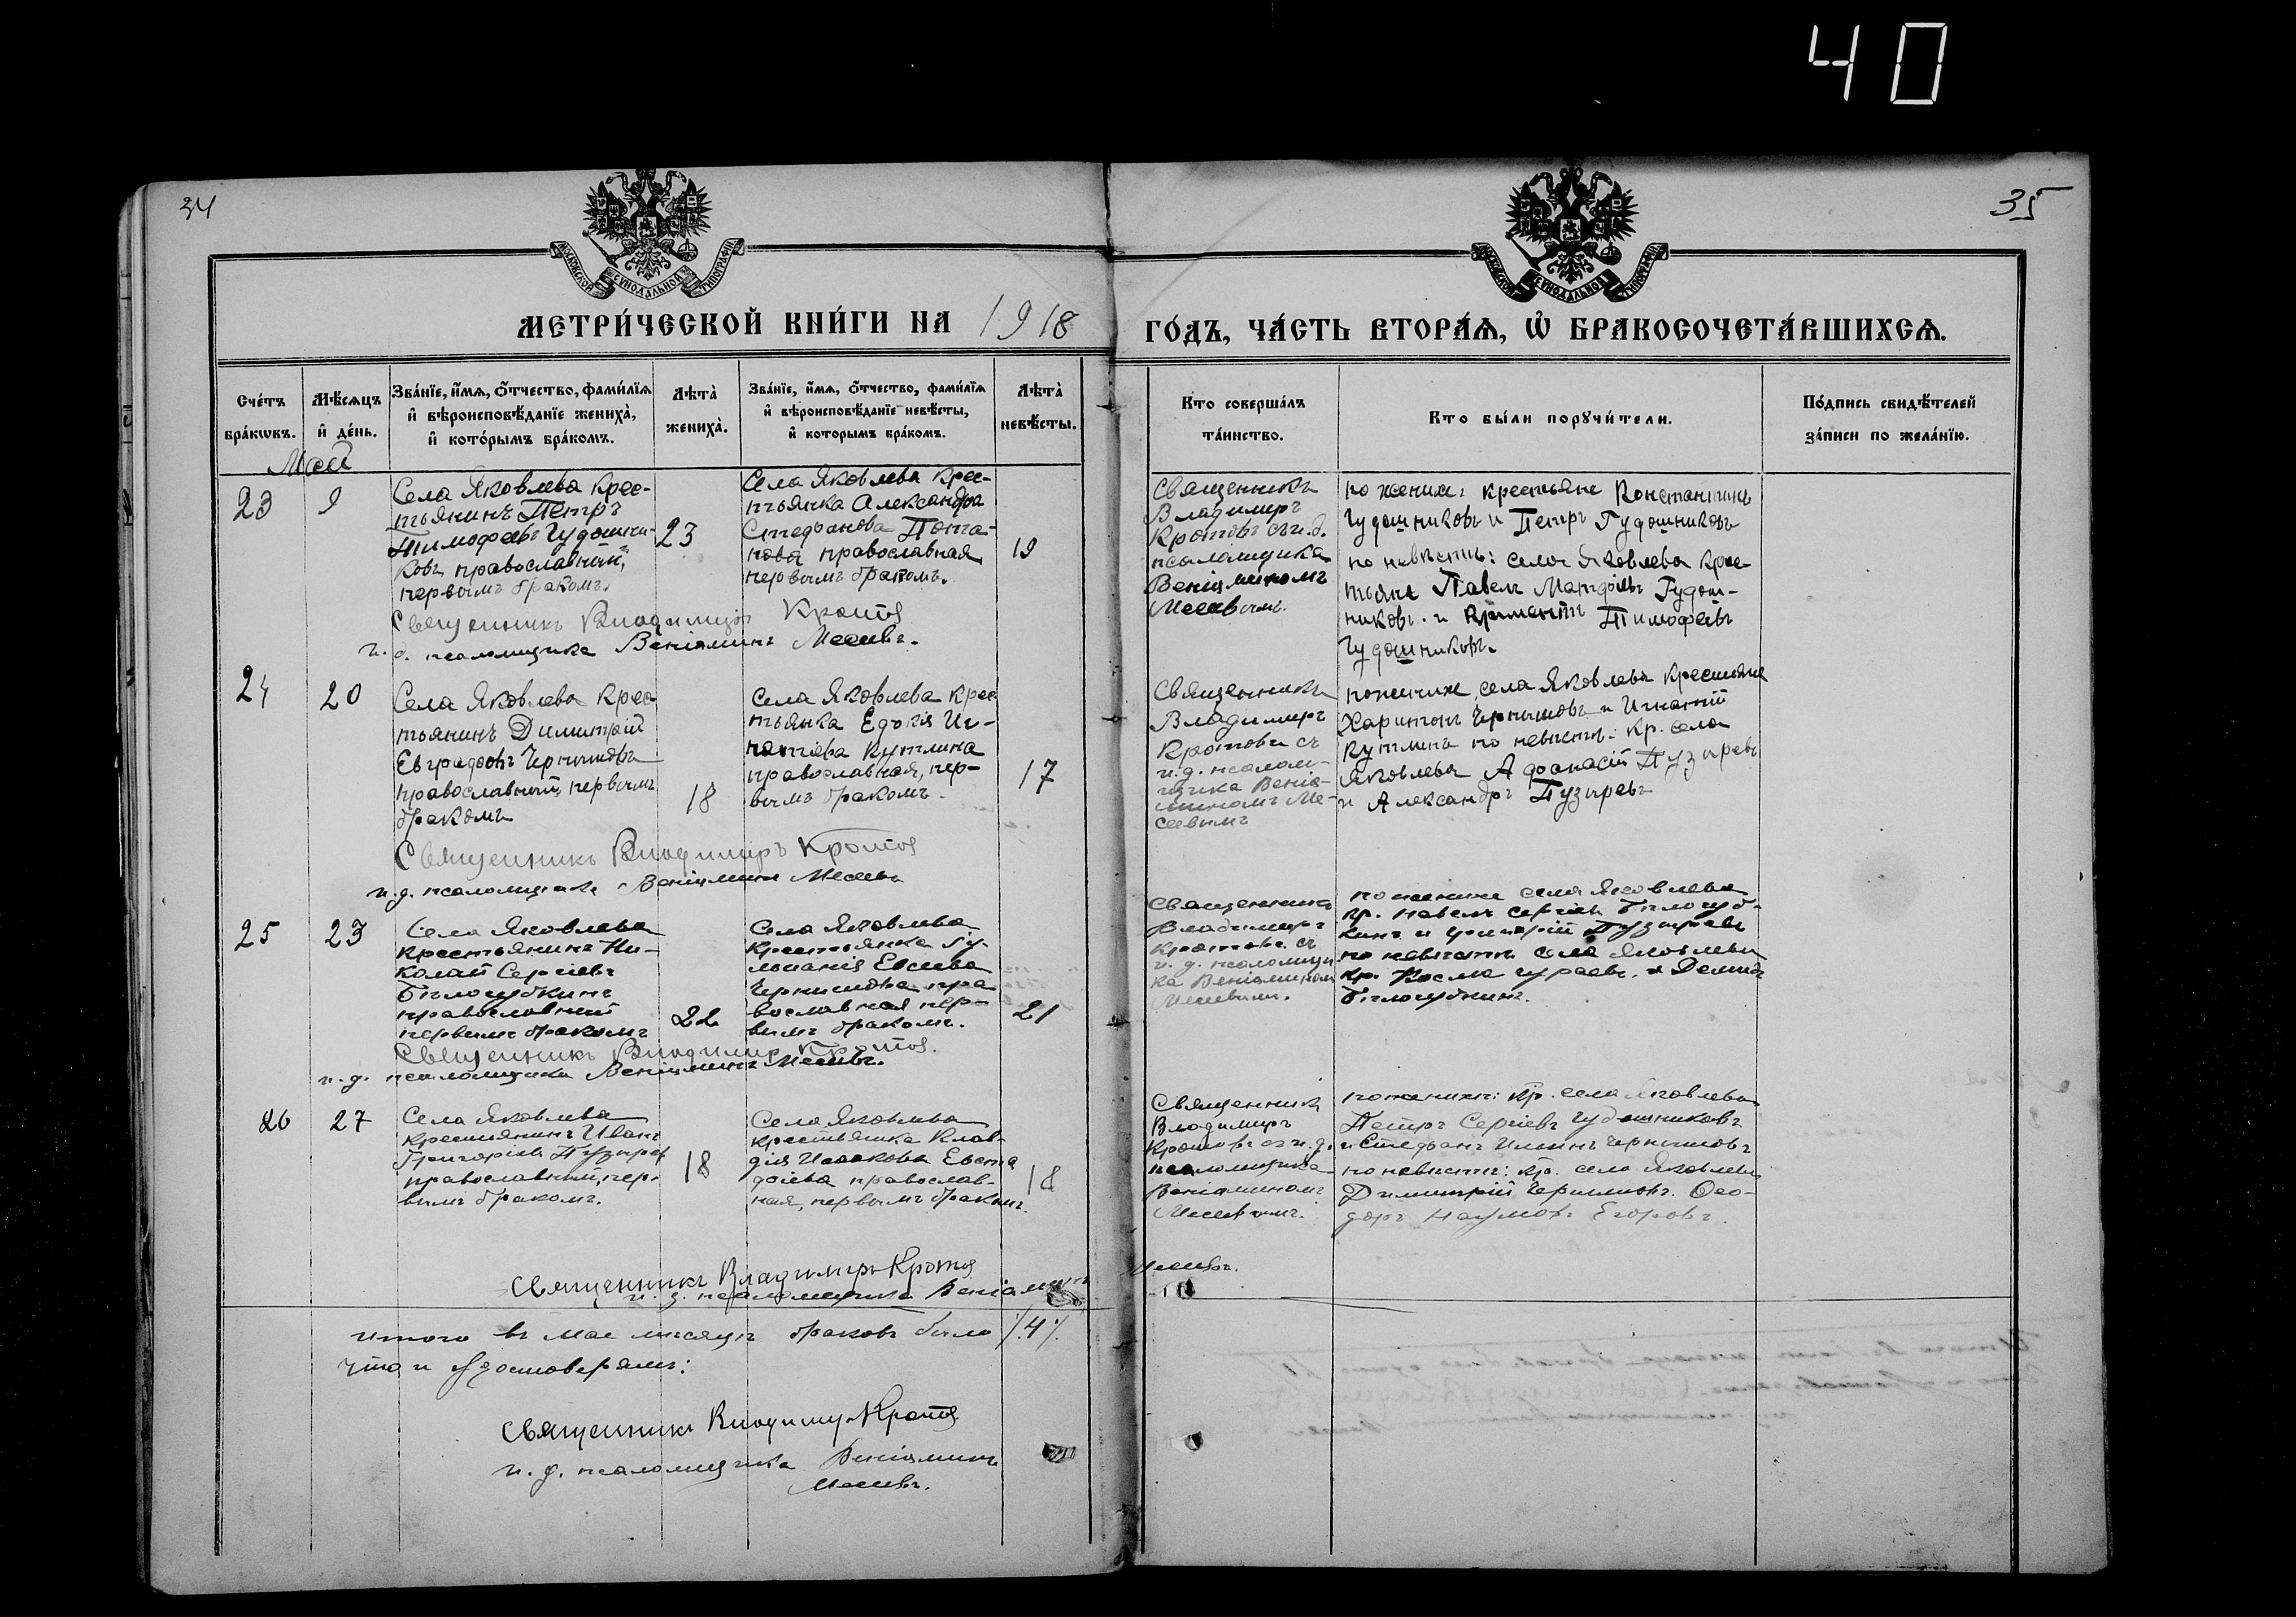 40
34
35
МОСКОВСКОЙ СѴНОДАЛЬНОЙ ТИПОГРАФІИ
МОСКОВСКОЙ СѴНОДАЛЬНОЙ ТИПОГРАФІИ
МЕТРИ́ЧЕСКОЙ КНИ́ГИ НА 1918
ГО́ДЪ, ЧА́СТЬ ВТОРА́Ѧ, Ѡ҆ БРАКОСОЧЕТА́ВШИХСѦ.
Сче́тъ
бра́кѡвъ.
Мѣ́сѧцъ
и҆ де́нь.
Зва́нїе, и҆́мѧ, ѻ҆́тчество, фами́лїѧ
и҆ вѣроисповѣ́данїе жениха̀,
и҆ кото́рымъ бра́комъ.
Лѣта̀
жениха̀.
Зва́нїе, и҆́мѧ, ѻ҆́тчество, фами́лїѧ
и҆ вѣроисповѣ́данїе невѣ́сты,
и҆ которымъ бра́комъ.
Лѣта̀
невѣ́сты.
Кто соверша́лъ
та́инство.
Кто бы́ли порꙋчи́тели.
По́дпись свидѣ́телей
за́писи по жела́нїю.
Май
23
9
Села Яковлева крес-
тьянинъ Петръ
Тимофеевъ Чудошни-
ковъ православный,
первымъ бракомъ.
23
Села Яковлева крес-
тьянка Александра
Стефанова Пота-
пова православная
первымъ бракомъ.
19
Священникъ
Владимиръ
Кротовъ съ и.д.
псаломщика
Веніаминомъ
Месевымъ.
по женихѣ: крестьяне Константинъ
Чудошниковъ и Петръ Чудошниковъ
по невѣстѣ: села Яковлева крес-
тьяне Павелъ
никовъ. и Тимофеевъ
Чудошниковъ.
Священникъ Владимиръ Кротов
и. д. псаломщика Веніаминъ Месевъ.
24
20
Села Яковлева крес-
тьянинъ Димитрій
Евграфовъ Чернышовъ
православный, первымъ
бракомъ
18
Села Яковлева крес
тьянка Едокія Иг-
натіева Кутлина
православная, пер-
вымъ бракомъ.
17
Священникъ
Владимиръ
Кротовъ съ
и.д. псалом-
щика Веніа-
миномъ Ме-
севымъ
по женихѣ, села Яковлева крестьяне
Харитонъ Чернышовъ и Игнатій
Кутлинъ по невѣстѣ: кр. села
Яковлева Афонасій Пузыревъ
и Александръ Пузыревъ
Священникъ Владимиръ Кротов
и.д. псаломщика Веніаминъ Месевъ
25
23
Села Яковлева
крестьянинъ Ни-
колай Сергіевъ
Бѣлогубкинъ
православный
первымъ бракомъ
22
Села Яковлева
крестьянка Іу-
ліанія Евсеева
Чернышова пра
вославная пер-
вымъ бракомъ.
21
Священникъ
Владимиръ
Кротовъ съ
и. д. псаломщи
ка Веніаминомъ
Месевымъ.
по женихѣ села Яковлева
кр. Павелъ Сергіевъ Бѣлогуб-
кинъ и Григорій Пузыревъ
по невѣстѣ села Яковлева
кр. Косма и Демидъ
Бѣлогубкинъ.
Священникъ Владимир Кротов.
и.д. псаломщика Веніаминъ Месевъ.
26
27
Села Яковлева
крестьянинъ Иванъ
Григоріевъ Пузырев
православный, пер-
вымъ бракомъ.
18
Села Яковлева
крестьянка Клав-
дія Исаакова Евста
фіева православ-
ная, первымъ бракомъ.
18
Священникъ
Владимиръ
Кротовъ съ и.д.
псаломщика
Веніаминомъ
Месевымъ.
по женихѣ: Кр. села Яковлева
Петръ Сергіевъ Чудошниковъ
и Стефанъ Ильинъ Чернышовъ
по невѣстѣ: кр. села Яковлева
Димитрій Чернышовъ. Ѳео-
доръ Наумовъ Егоровъ.
Священникъ Владимиръ Кротов
и. д. псаломщика Веніаминъ Месевъ.
Итого въ мае мѣсяцѣ браковъ было 4
что и удостоверяемъ:
Священникъ Владимиръ Кротов
и. д. псаломщика Веніаминъ
Месевъ.